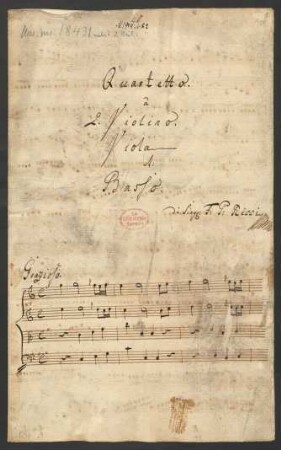 Mus. ms. 18431
Quartetto.
à
2. Violino.
Viola
Basso.
F. P. Ricci
Grazioso